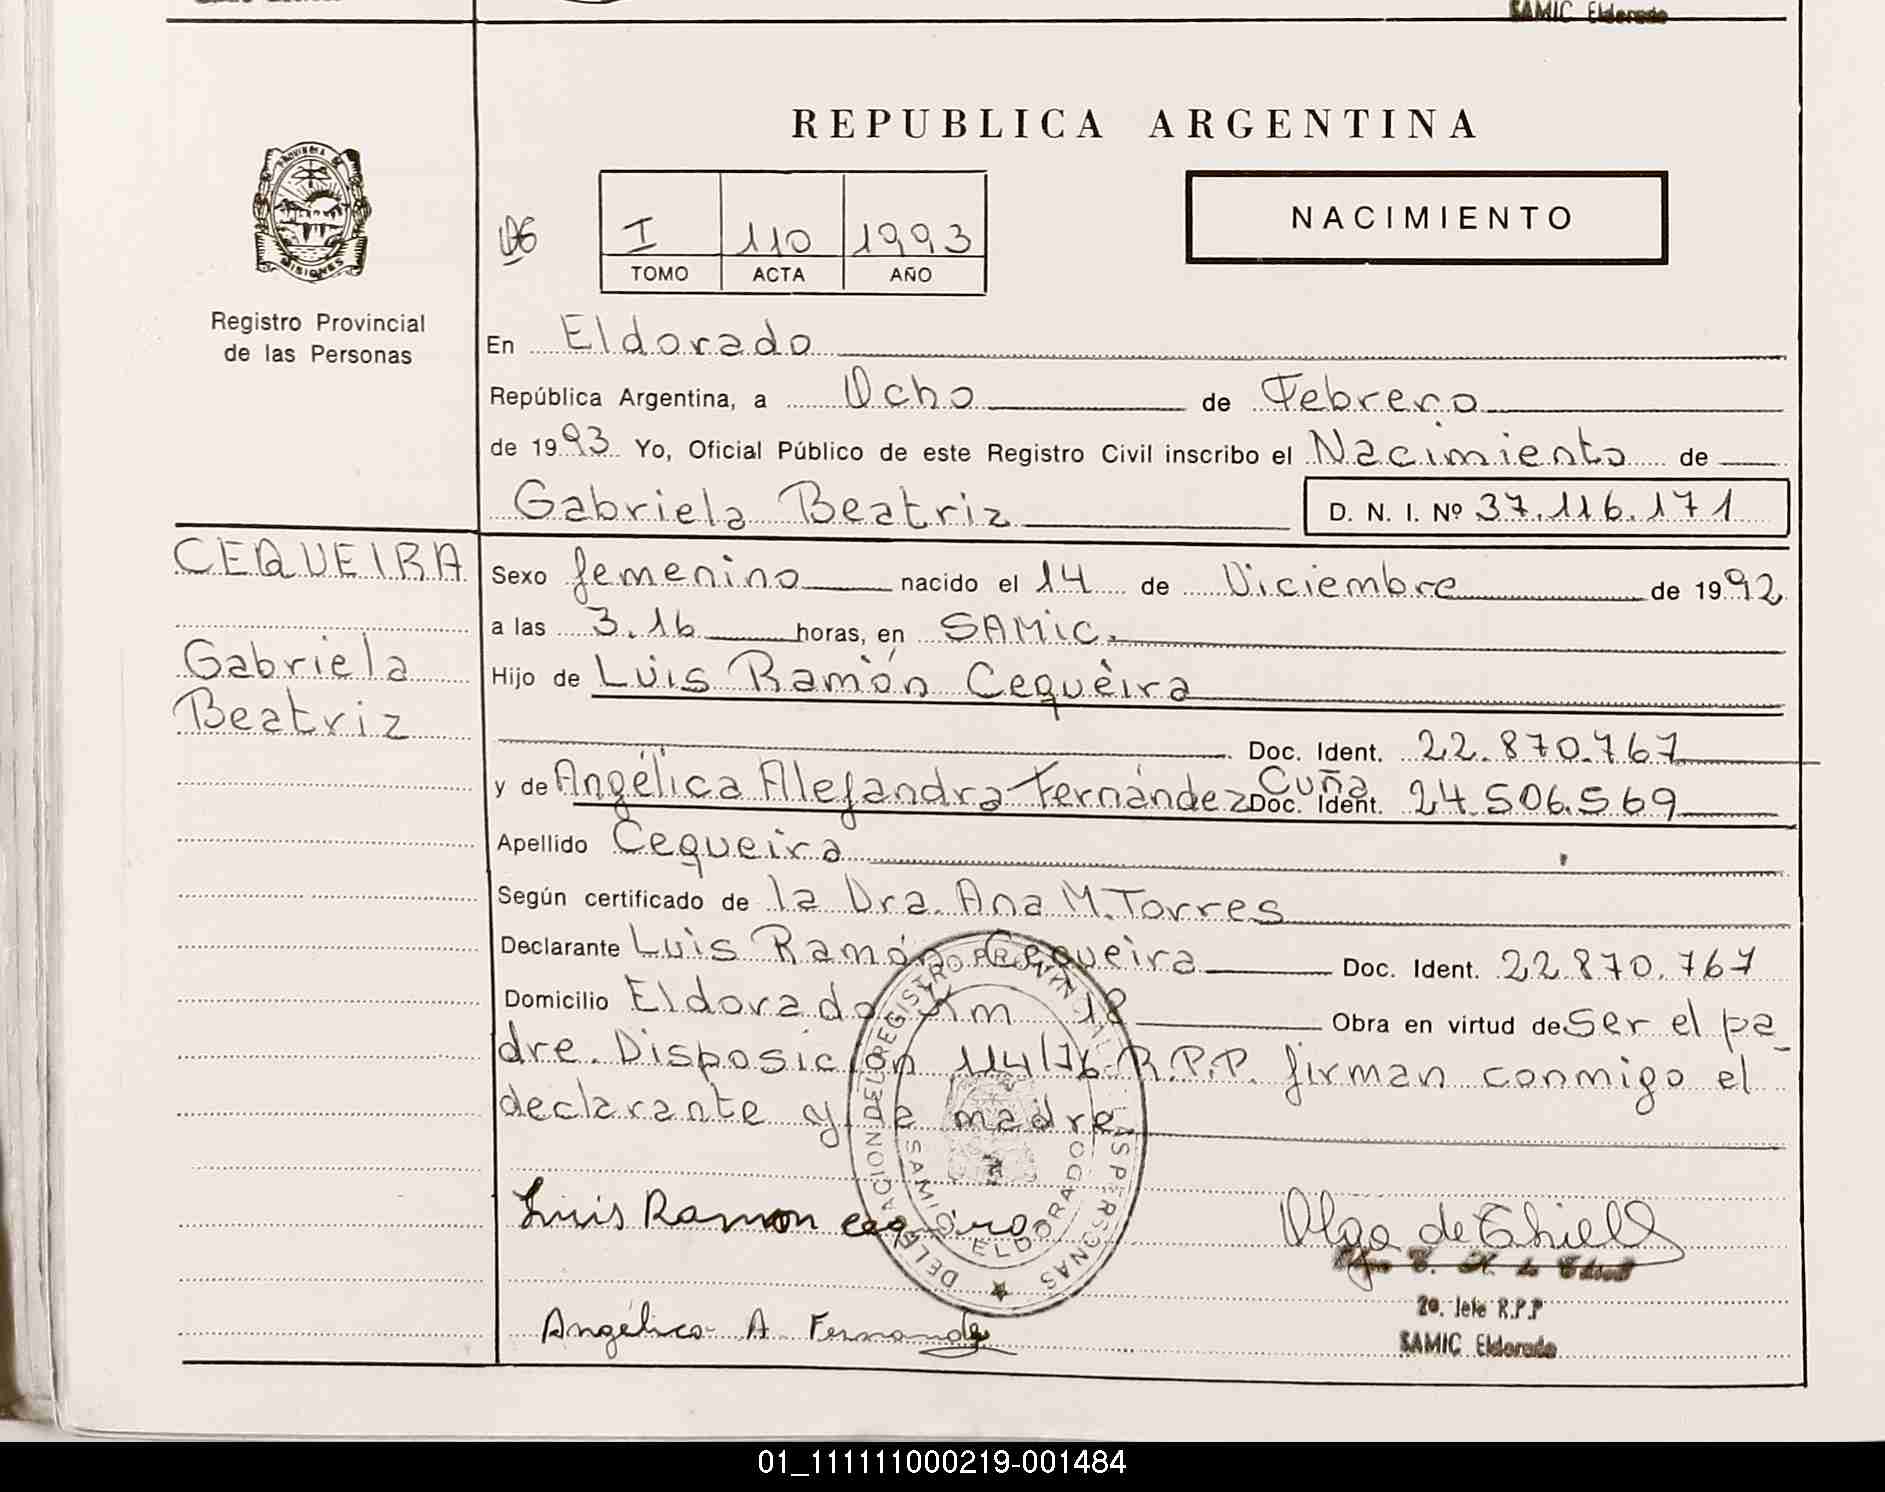 SAMIC Eldorado
REPUBLICA ARGENTINA
PROVINCIA DE
MISIONES
Registro Provincial
de las Personas
I 110 1993
TOMO ACTA AÑO
NACIMIENTO
En Eldorado
República Argentina, a Ocho de Febrero
de 1993 Yo, Oficial Público de este Registro Civil inscribo el Nacimiento de
Gabriela Beatriz D. N. I. Nº 37.116.171
CEQUEIRA
Gabriela
Beatriz
Sexo femenino nacido el 14 de Diciembre de 1992
a las 3.16 horas, en SAMIC.
Hijo de Luis Ramón Cequeira
Doc. Ident. 22.870.767
y de Angélica Alejandra Fernández Cuña Doc. Ident. 24.506.569
Apellido Cequeira
Según certificado de la Dra. Ana M. Torres
Declarante Luis Ramón Cequeira Doc. Ident. 22.870.767
Domicilio Eldorado Km 18 Obra en virtud de Ser el pa
dre. Disposición 114/76 R.P.P. firman conmigo el
declarante y la madre
DELEGACION DEL REGISTRO PROVINCIAL DE LAS PERSONAS
SAMIC ELDORADO
Luis Ramon cequeira
Olga de Thiell
Angélica A. Fernandez
2o. Jefe R.P.P
SAMIC Eldorado
01_111111000219-001484